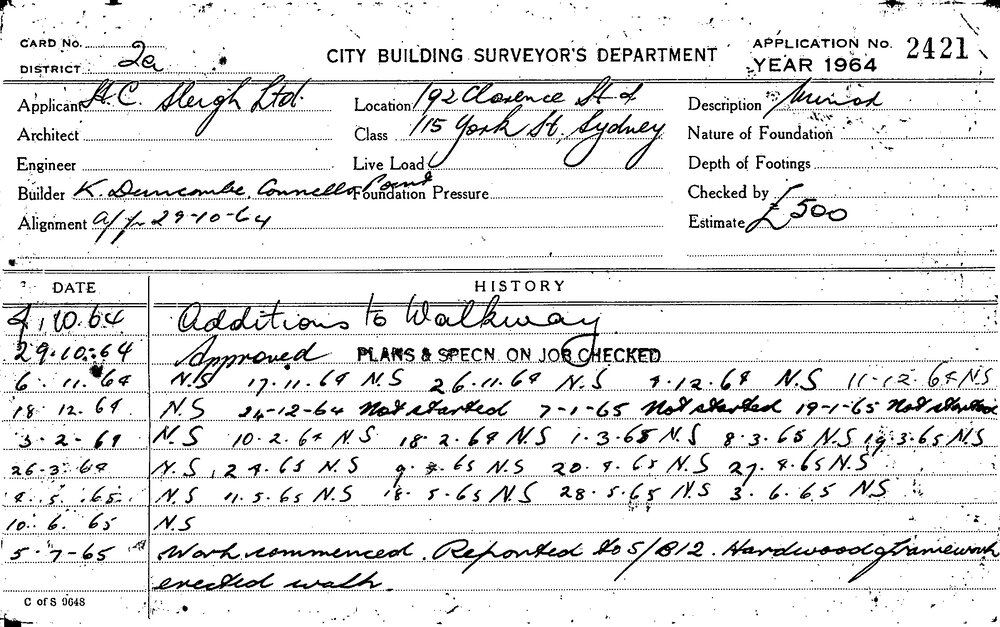 CARD No.
DISTRICT 2a
CITY BUILDING SURVEYOR'S DEPARTMENT
APPLICATION No. 2421
YEAR 1964
Applicant H.C. Sleigh Ltd.
Location 192 Clarence St &
Description Minor
Architect
Class 115 York St, Sydney
Nature of Foundation
Engineer
Live Load
Depth of Footings
Builder K. Duncombe, Connells Point
Foundation Pressure
Checked by
Alignment 29-10-64
Estimate £500
DATE HISTORY
10.64 Additions to Walkway
29.10.64 Approved PLANS & SPECN ON JOB CHECKED
6.11.64 N.S 17.11.64 N.S 26.11.64 N.S 4.12.64 N.S 11.12.64 N.S
18.12.64 N.S 24-12-64 Not started 7-1-65 Not started 19-1-65 Not started
3-2-64 N.S 10.2.64 N.S 18.2.64 N.S 1.3.65 N.S 8.3.65 N.S 19.3.65 N.S
26-3-64 N.S 2.4.65 N.S 9.4.65 N.S 20.4.65 N.S 27.4.65 N.S
4.5.65 N.S 11.5.65 N.S 18.5.65 N.S 28.5.65 N.S 3.6.65 N.S
10.6.65 N.S
5-7-65 Work commenced. Reported to S/B12. Hardwood framework
erected
C of S 9648